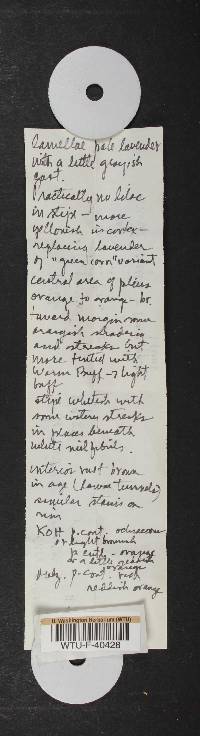 Lamellae pale lavender
with a little grayish
cast.
Practically no lilac
in stipe - more
yellowish in cortex -
replacing lavender
of "green corn" variant
central area of pileus
orange to orange - br.
toward margin some
orangish shading
and streaks but
more tinted with
Warm Buff -> light
buff
stipe whitish with
some watery streaks
in places beneath
white
interior rust brown
in age (larva tunnels)
similar stains on
rim
KOH p. cont. ochraceous
or light brownish
p. cutl - orange
or a little reddish
orange
p. cont.
reddish orange
U. Washington Herbarium (WTU)
WTU-F-40428